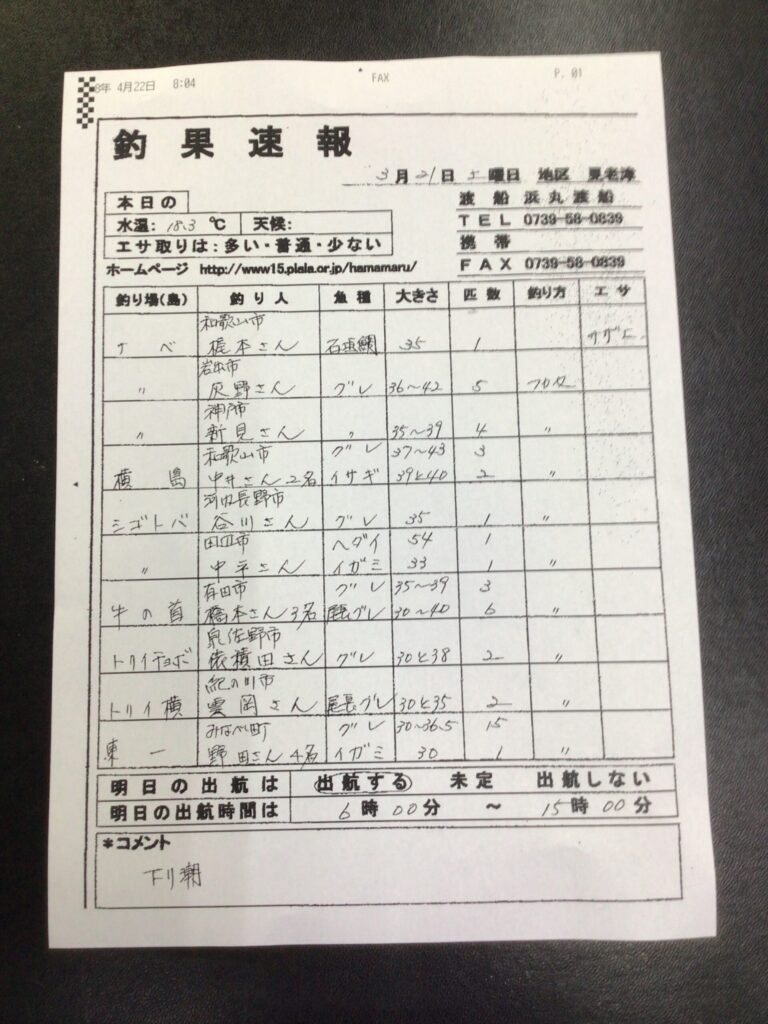 8年 4月22日 8:04 FAX P. 01
釣果速報
3月21日 土曜日 地区 見老津
本日の
水温: 18.3 ℃ 天候:
エサ取りは:多い・普通・少ない
渡船 浜丸渡船
TEL 0739-58-0839
携帯
FAX 0739-58-0839
ホームページ http://www15.plala.or.jp/hamamaru/
釣り場(島) 釣り人 魚種 大きさ 匹数 釣り方 エサ
和歌山市
ナベ 橋本さん 石垣鯛 35 1 サザエ
岩出市
〃 灰野さん グレ 36〜42 5 フカセ
神戸市
〃 新見さん 〃 35〜39 4 〃
和歌山市 グレ 37〜43 3
横島 中井さん2名 イサギ 39と40 2 〃
河内長野市
シゴトバ 谷川さん グレ 35 1 〃
田辺市 ヘダイ 54 1
〃 中平さん イガミ 33 1 〃
有田市 グレ 35〜39 3
牛の首 橋本さん3名 尾長グレ 30〜40 6 〃
泉佐野市
トリイチョボ 俵積田さん グレ 30と38 2 〃
紀の川市
トリイ横 雲岡さん 尾長グレ 30と35 2 〃
みなべ町 グレ 30〜36.5 15
東一 野田さん4名 イガミ 30 1 〃
明日の出航は 出航する 未定 出航しない
明日の出航時間は 6時00分 〜 15時00分
*コメント
下り潮